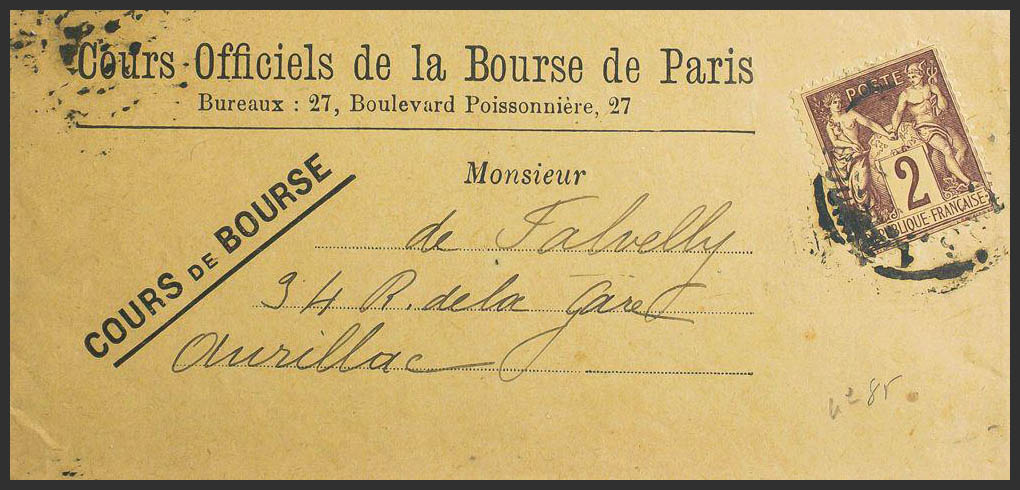 Cours Officiels de la Bourse de Paris
Bureaux : 27, Boulevard Poissonnière, 27
POSTE
2
RÉPUBLIQUE-FRANÇAISE
Monsieur
COURS DE BOURSE
de Falvelly
34 R. de la Gare
Aurillac
nº 85